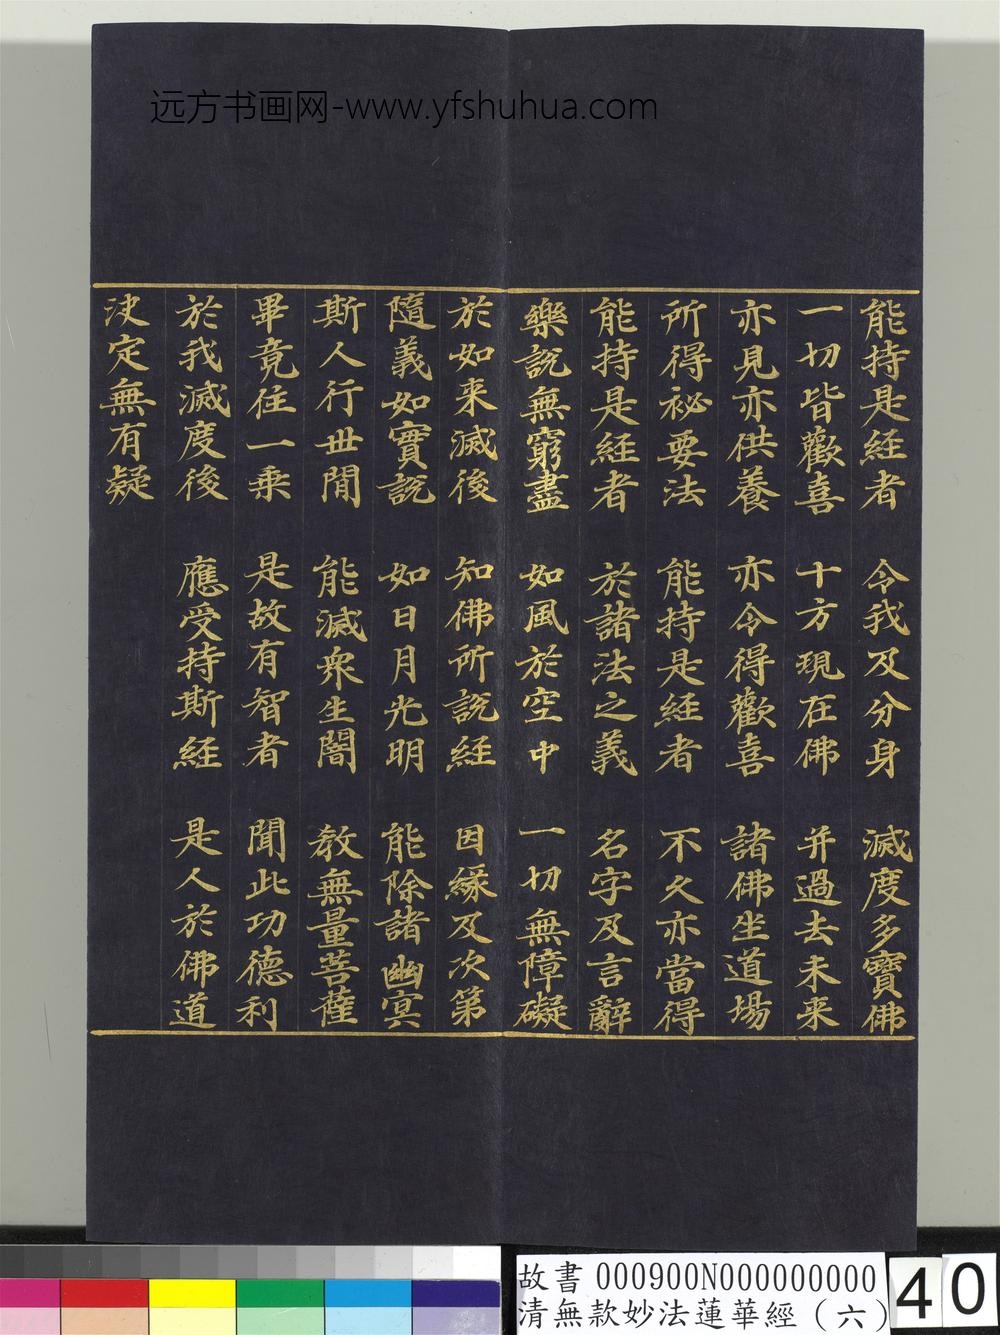 远方书画网-www.yfshuhua.com
能持是经者 令我及分身 滅度多寶佛
一切皆歡喜 十方現在佛 并過去未来
亦見亦供養 亦令得歡喜 諸佛坐道場
所得祕要法 能持是经者 不久亦當得
能持是经者 於諸法之義 名字及言辭
樂説無窮盡 如風於空中 一切無障礙
於如来滅後 知佛所説经 因緣及次第
隨義如實説 如日月光明 能除諸幽冥
斯人行世間 能滅衆生闇 教無量菩薩
畢竟住一乘 是故有智者 聞此功德利
於我滅度後 應受持斯经 是人於佛道
决定無有疑
故書 000900N000000000
清無款妙法蓮華經（六）
40